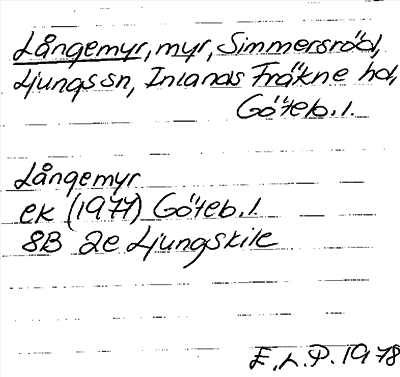 Långemyr, myr, Simmersröd,
Ljungs sn, Inlands Fräkne hd,
Göteb. l.
Långemyr
ek (1977) Göteb. l.
8B 2e Ljungskile
E. L. P. 1978